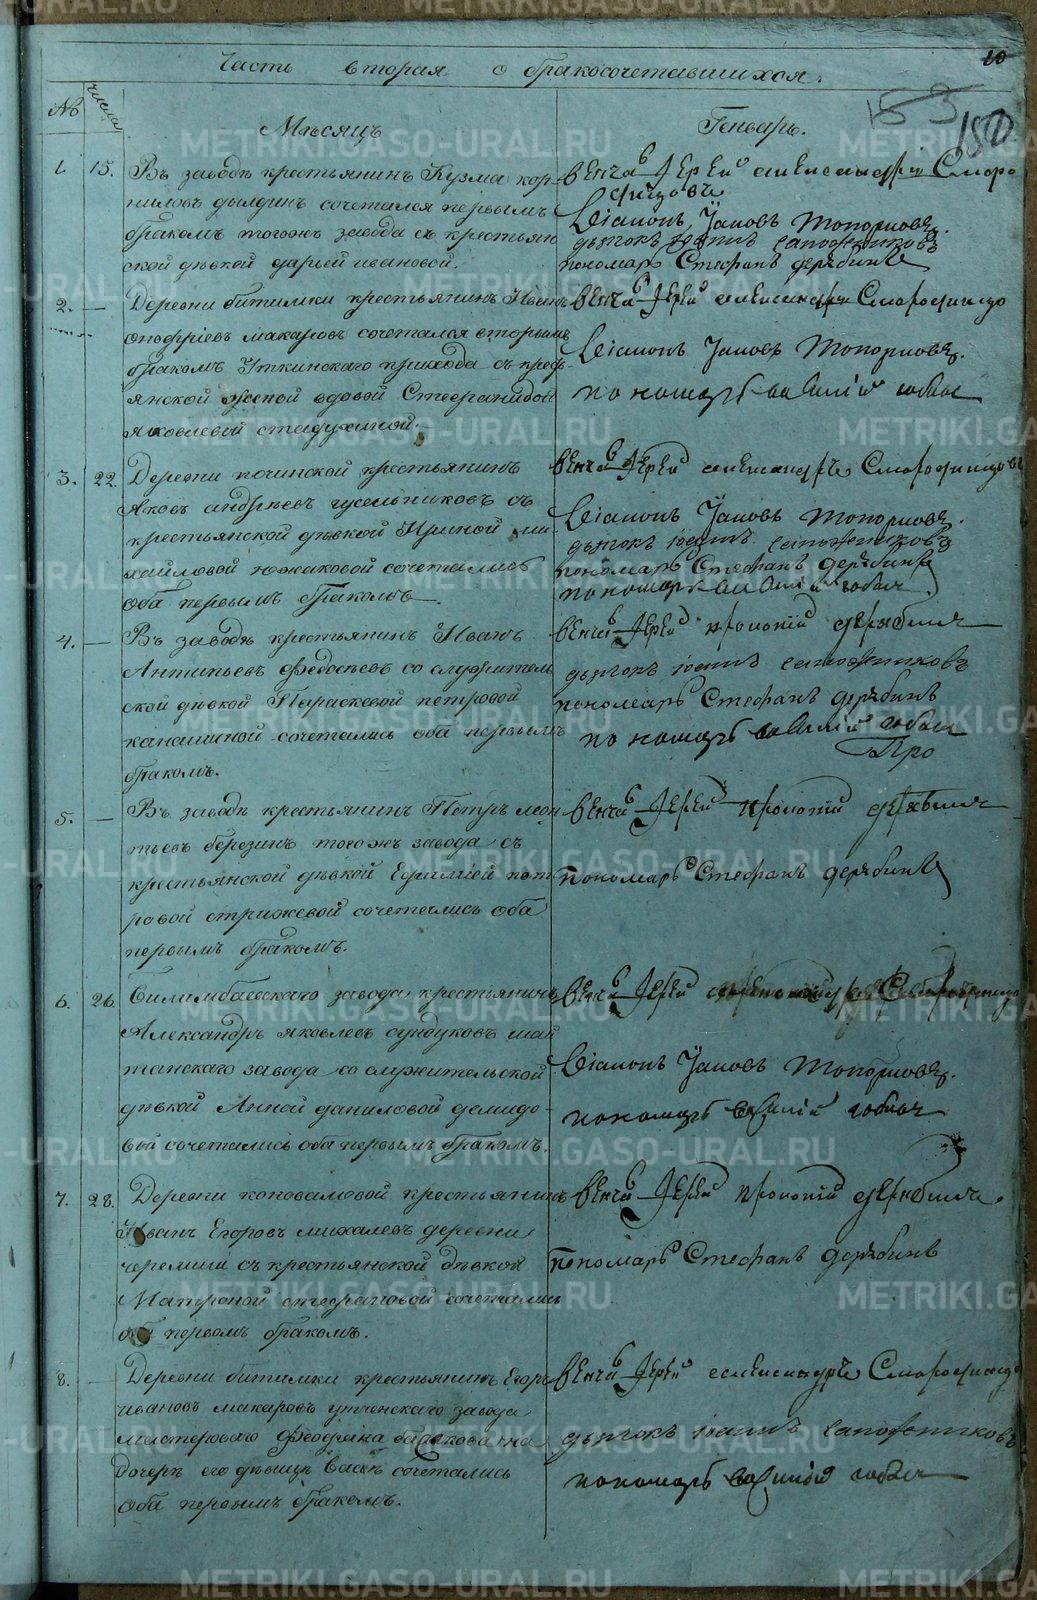 10
Часть вторая о бракосочетавшихся.
№ числа
Мѣсяцъ Генварь.
153 150
1. 15. Въ заводѣ крестьянинъ Кузма кор-
ниловъ дылдинъ сочетался первымъ
бракомъ тогожъ завода съ крестьян
ской дѣвкой дарьей ивановой.
Венча Іерей александръ Сморо
динцовъ
Діаконъ Іаковъ Топорковъ.
дьячокъ іоаннъ сапожниковъ
пономарь Стефанъ дерябинъ
2. — Деревни битимки крестьянинъ Иванъ
онофріевъ макаровъ сочетался вторымъ
бракомъ Уткинскаго прихода съ кресть-
янской женой вдовой Стефанидой
яковлевой
Венча Іерей александръ Смородинцо
Діаконъ Іаковъ Топорковъ.
пономарь василій
3. 22. Деревни починской крестьянинъ
Яковъ андрѣевъ гусельниковъ съ
крестьянской дѣвкой Ириной ми
хайловой южаковой сочетались
оба первымъ бракомъ.
Венча Іерей александръ Смородинцовъ
Діаконъ Іаковъ Топорковъ.
дьячокъ іоаннъ сапожниковъ
пономарь Стефанъ дерябинъ
пономарь василій
4. — Въ заводѣ крестьянинъ Иванъ
Антипьевъ федосѣевъ со служитель
ской дѣвкой Параскевой петровой
канашиной сочетались оба первымъ
бракомъ.
Венча Іерей прокопій дерябинъ
дьячокъ іоаннъ сапожниковъ
пономарь Стефанъ дерябинъ
пономарь василій
Про
5. — Въ заводѣ крестьянинъ Петръ леон
тьевъ березинъ тогожъ завода съ
крестьянской дѣвкой Евфиміей пет
ровой стрижевой сочетались оба
первымъ бракомъ.
Венча Іерей прокопій дерябинъ
пономарь Стефанъ дерябинъ
6. 26. Билимбаевскаго завода крестьянинъ
Александръ яковлевъ сундуковъ шай
танскаго завода со служительской
дѣвкой Анной даниловой демидо-
вой сочетались оба первымъ бракомъ.
Венча Іерей александръ Смородинцов
Діаконъ Іаковъ Топорковъ.
пономарь василій
7. 28. Деревни коноваловой крестьянинъ
Иванъ Егоровъ михалевъ деревни
черемши съ крестьянской дѣвкой
Матроной стефановой сочетались
оба первымъ бракомъ.
Венча Іерей прокопій дерябинъ.
пономарь Стефанъ дерябинъ
8. — Деревни битимки крестьянинъ Егоръ
ивановъ макаровъ уткинскаго завода
мастероваго на
дочерѣ его дѣвицѣ сочетались
оба первымъ бракомъ.
Венча Іерей александръ Смородинцо
дьячокъ іоаннъ сапожниковъ
пономарь василій
METRIKI.GASO-URAL.RU